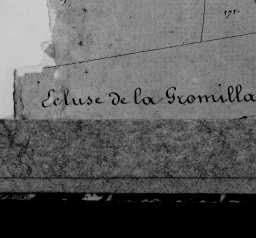 Ecluse de la Gromilla